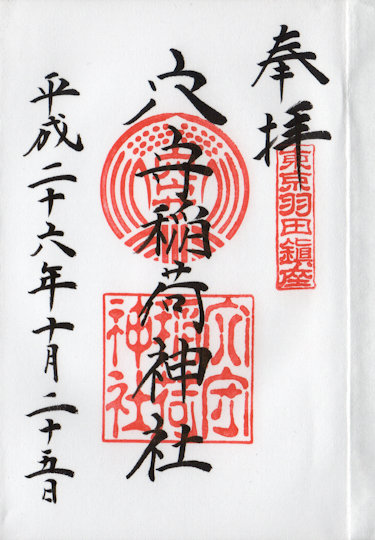 奉拝
東京羽田鎮座
穴守稲荷神社
穴守
稲荷
神社
平成二十六年十月二十五日